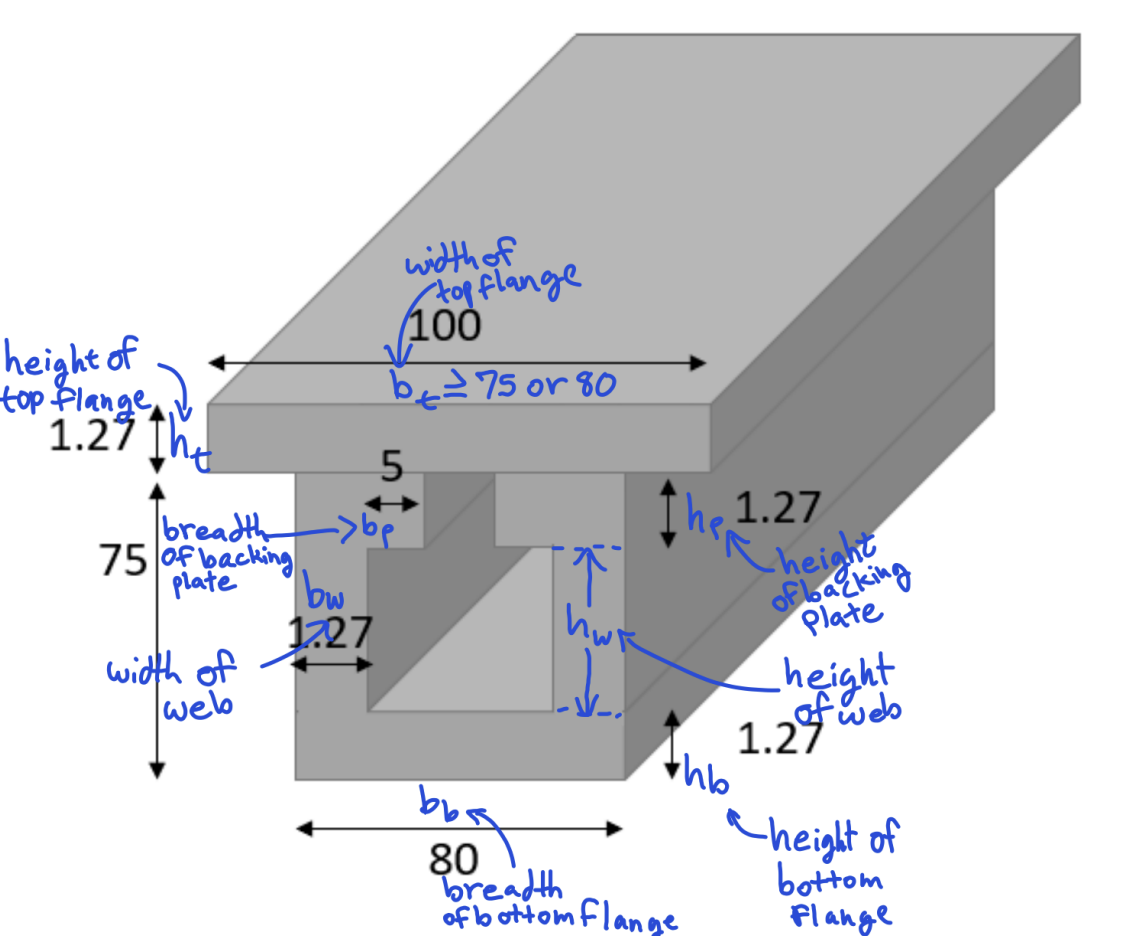 width of
top flange
100
bt ≥ 75 or 80
height of
top flange
1.27
ht
5
breadth
of backing
plate
bp
hp
1.27
75
height
of backing
plate
bw
1.27
hw
width of
web
height
of web
1.27
hb
bb
80
height of
bottom
flange
breadth
of bottom flange